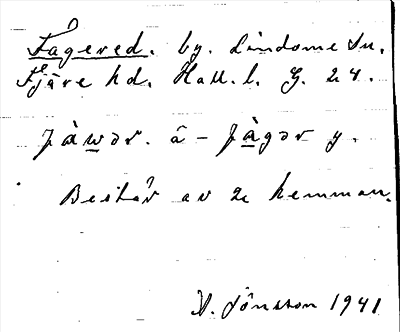 Fagered. by. Lindome sn.
Fjäre hd. Hall. l. G. 24.
fàwər. ä – fàgər y.
Består av 2 hemman.
A. Jönsson 1941